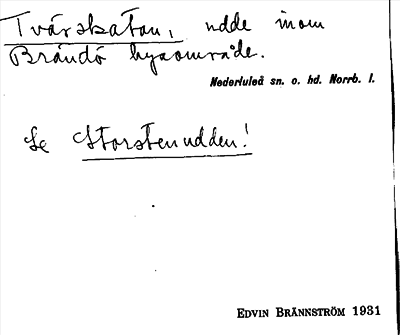 Tvärskatan, udde inom
Brändö byaområde.
Nederluleå sn. o. hd. Norrb. l.
Se Storstenudden!
EDVIN BRÄNNSTRÖM 1931